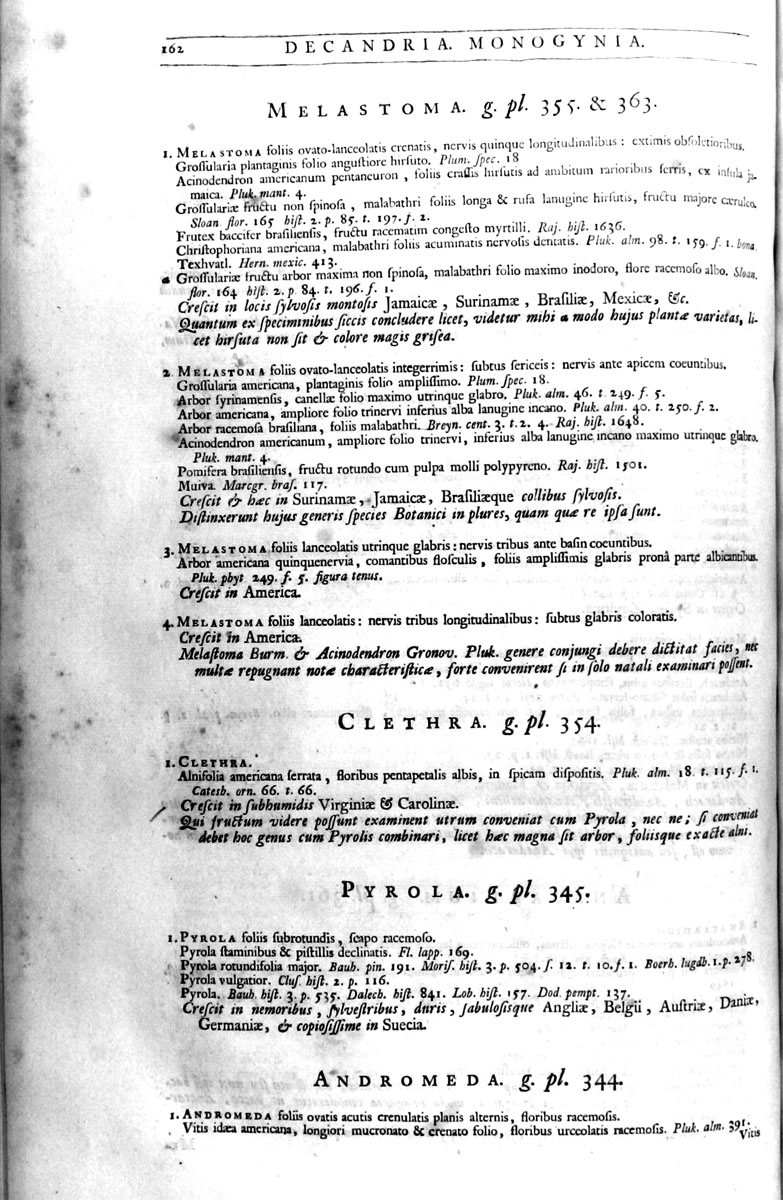 162 DECANDRIA. MONOGYNIA.
MELASTOMA. g. pl. 355. & 363.
1. MELASTOMA foliis ovato-lanceolatis crenatis, nervis quinque longitudinalibus: extimis obsoletioribus.
Grossularia plantaginis folio angustiore hirsuto. Plum. spec. 18
Acinodendron americanum pentaneuron, foliis crassis hirsutis ad ambitum rarioribus serris, ex insula ja-
maica. Pluk. mant. 4.
Grossulariæ fructu non spinosa, malabathri foliis longa & rufa lanugine hirsutis, fructu majore cæruleo.
Sloan. flor. 165 hist. 2. p. 85. t. 197. f. 2.
Frutex baccifer brasiliensis, fructu racematim congesto myrtilli. Raj. hist. 1636.
Christophoriana americana, malabathri foliis acuminatis nervosis dentatis. Pluk. alm. 98. t. 159. f. 1. bona
Texhvatl. Hern. mexic. 413.
a Grossulariæ fructu arbor maxima non spinosa, malabathri folio maximo inodoro, flore racemoso albo. Sloan.
flor. 164 hist. 2. p. 84. t. 196. f. 1.
Crescit in locis sylvosis montosis Jamaicæ, Surinamæ, Brasiliæ, Mexicæ, &c.
Quantum ex speciminibus siccis concludere licet, videtur mihi a modo hujus plantæ varietas, li-
cet hirsuta non sit & colore magis grisea.
2. MELASTOMA foliis ovato-lanceolatis integerrimis: subtus sericeis: nervis ante apicem coeuntibus.
Grossularia americana, plantaginis folio amplissimo. Plum. spec. 18.
Arbor syrinamensis, canellæ folio maximo utrinque glabro. Pluk. alm. 46. t. 249. f. 5.
Arbor americana, ampliore folio trinervi inferius alba lanugine incano. Pluk. alm. 40. t. 250. f. 2.
Arbor racemosa brasiliana, foliis malabathri. Breyn. cent. 3. t. 2. 4. Raj. hist. 1648.
Acinodendron americanum, ampliore folio trinervi, inferius alba lanugine incano maximo utrinque glabro.
Pluk. mant. 4.
Pomifera brasiliensis, fructu rotundo cum pulpa molli polypyreno. Raj. hist. 1501.
Muiva. Marcgr. bras. 117.
Crescit & hæc in Surinamæ, Jamaicæ, Brasiliæque collibus sylvosis.
Distinxerunt hujus generis species Botanici in plures, quam quæ re ipsa sunt.
3. MELASTOMA foliis lanceolatis utrinque glabris: nervis tribus ante basin coeuntibus.
Arbor americana quinquenervia, comantibus flosculis, foliis amplissimis glabris pronâ parte albicantibus.
Pluk. phyt. 249. f. 5. figura tenus.
Crescit in America.
4. MELASTOMA foliis lanceolatis: nervis tribus longitudinalibus: subtus glabris coloratis.
Crescit in America.
Melastoma Burm. & Acinodendron Gronov. Pluk. genere conjungi debere dictitat facies, nec
multæ repugnant notæ characteristicæ, forte convenirent si in solo natali examinari possent.
CLETHRA. g. pl. 354.
1. CLETHRA.
Alnifolia americana serrata, floribus pentapetalis albis, in spicam dispositis. Pluk. alm. 18. t. 115. f. 1.
Catesb. orn. 66. t. 66.
Crescit in subhumidis Virginiæ & Carolinæ.
Qui fructum videre possunt examinent utrum conveniat cum Pyrola, nec ne; si conveniat
debet hoc genus cum Pyrolis combinari, licet hæc magna sit arbor, foliisque exacte alni.
PYROLA. g. pl. 345.
1. PYROLA foliis subrotundis, scapo racemoso.
Pyrola staminibus & pistillis declinatis. Fl. lapp. 169.
Pyrola rotundifolia major. Bauh. pin. 191. Moris. hist. 3. p. 504. s. 12. t. 10. f. 1. Boerh. lugdb. 1. p. 278.
Pyrola vulgatior. Clus. hist. 2. p. 116.
Pyrola. Bauh. hist. 3. p. 535. Dalech. hist. 841. Lob. hist. 157. Dod. pempt. 137.
Crescit in nemoribus, sylvestribus, duris, sabulosisque Angliæ, Belgii, Austriæ, Daniæ,
Germaniæ, & copiosissime in Suecia.
ANDROMEDA. g. pl. 344.
1. ANDROMEDA foliis ovatis acutis crenulatis planis alternis, floribus racemosis.
Vitis idæa americana, longiori mucronato & crenato folio, floribus urceolatis racemosis. Pluk. alm. 391.
Vitis